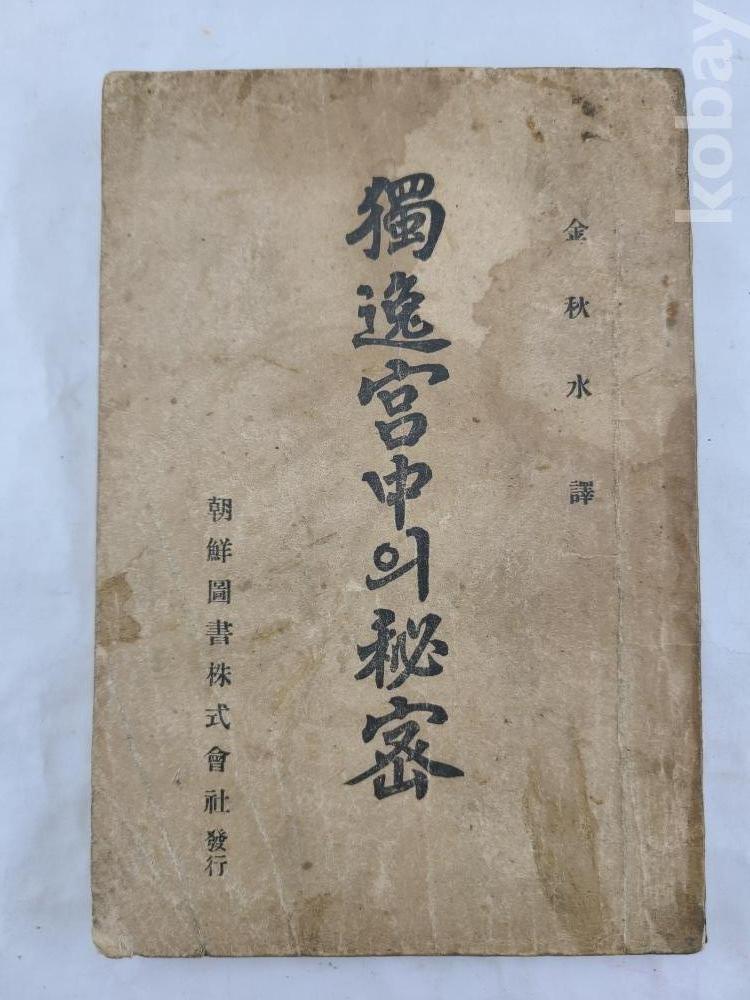 金秋水 譯
獨逸宮中의秘密
朝鮮圖書株式會社發行
kobay